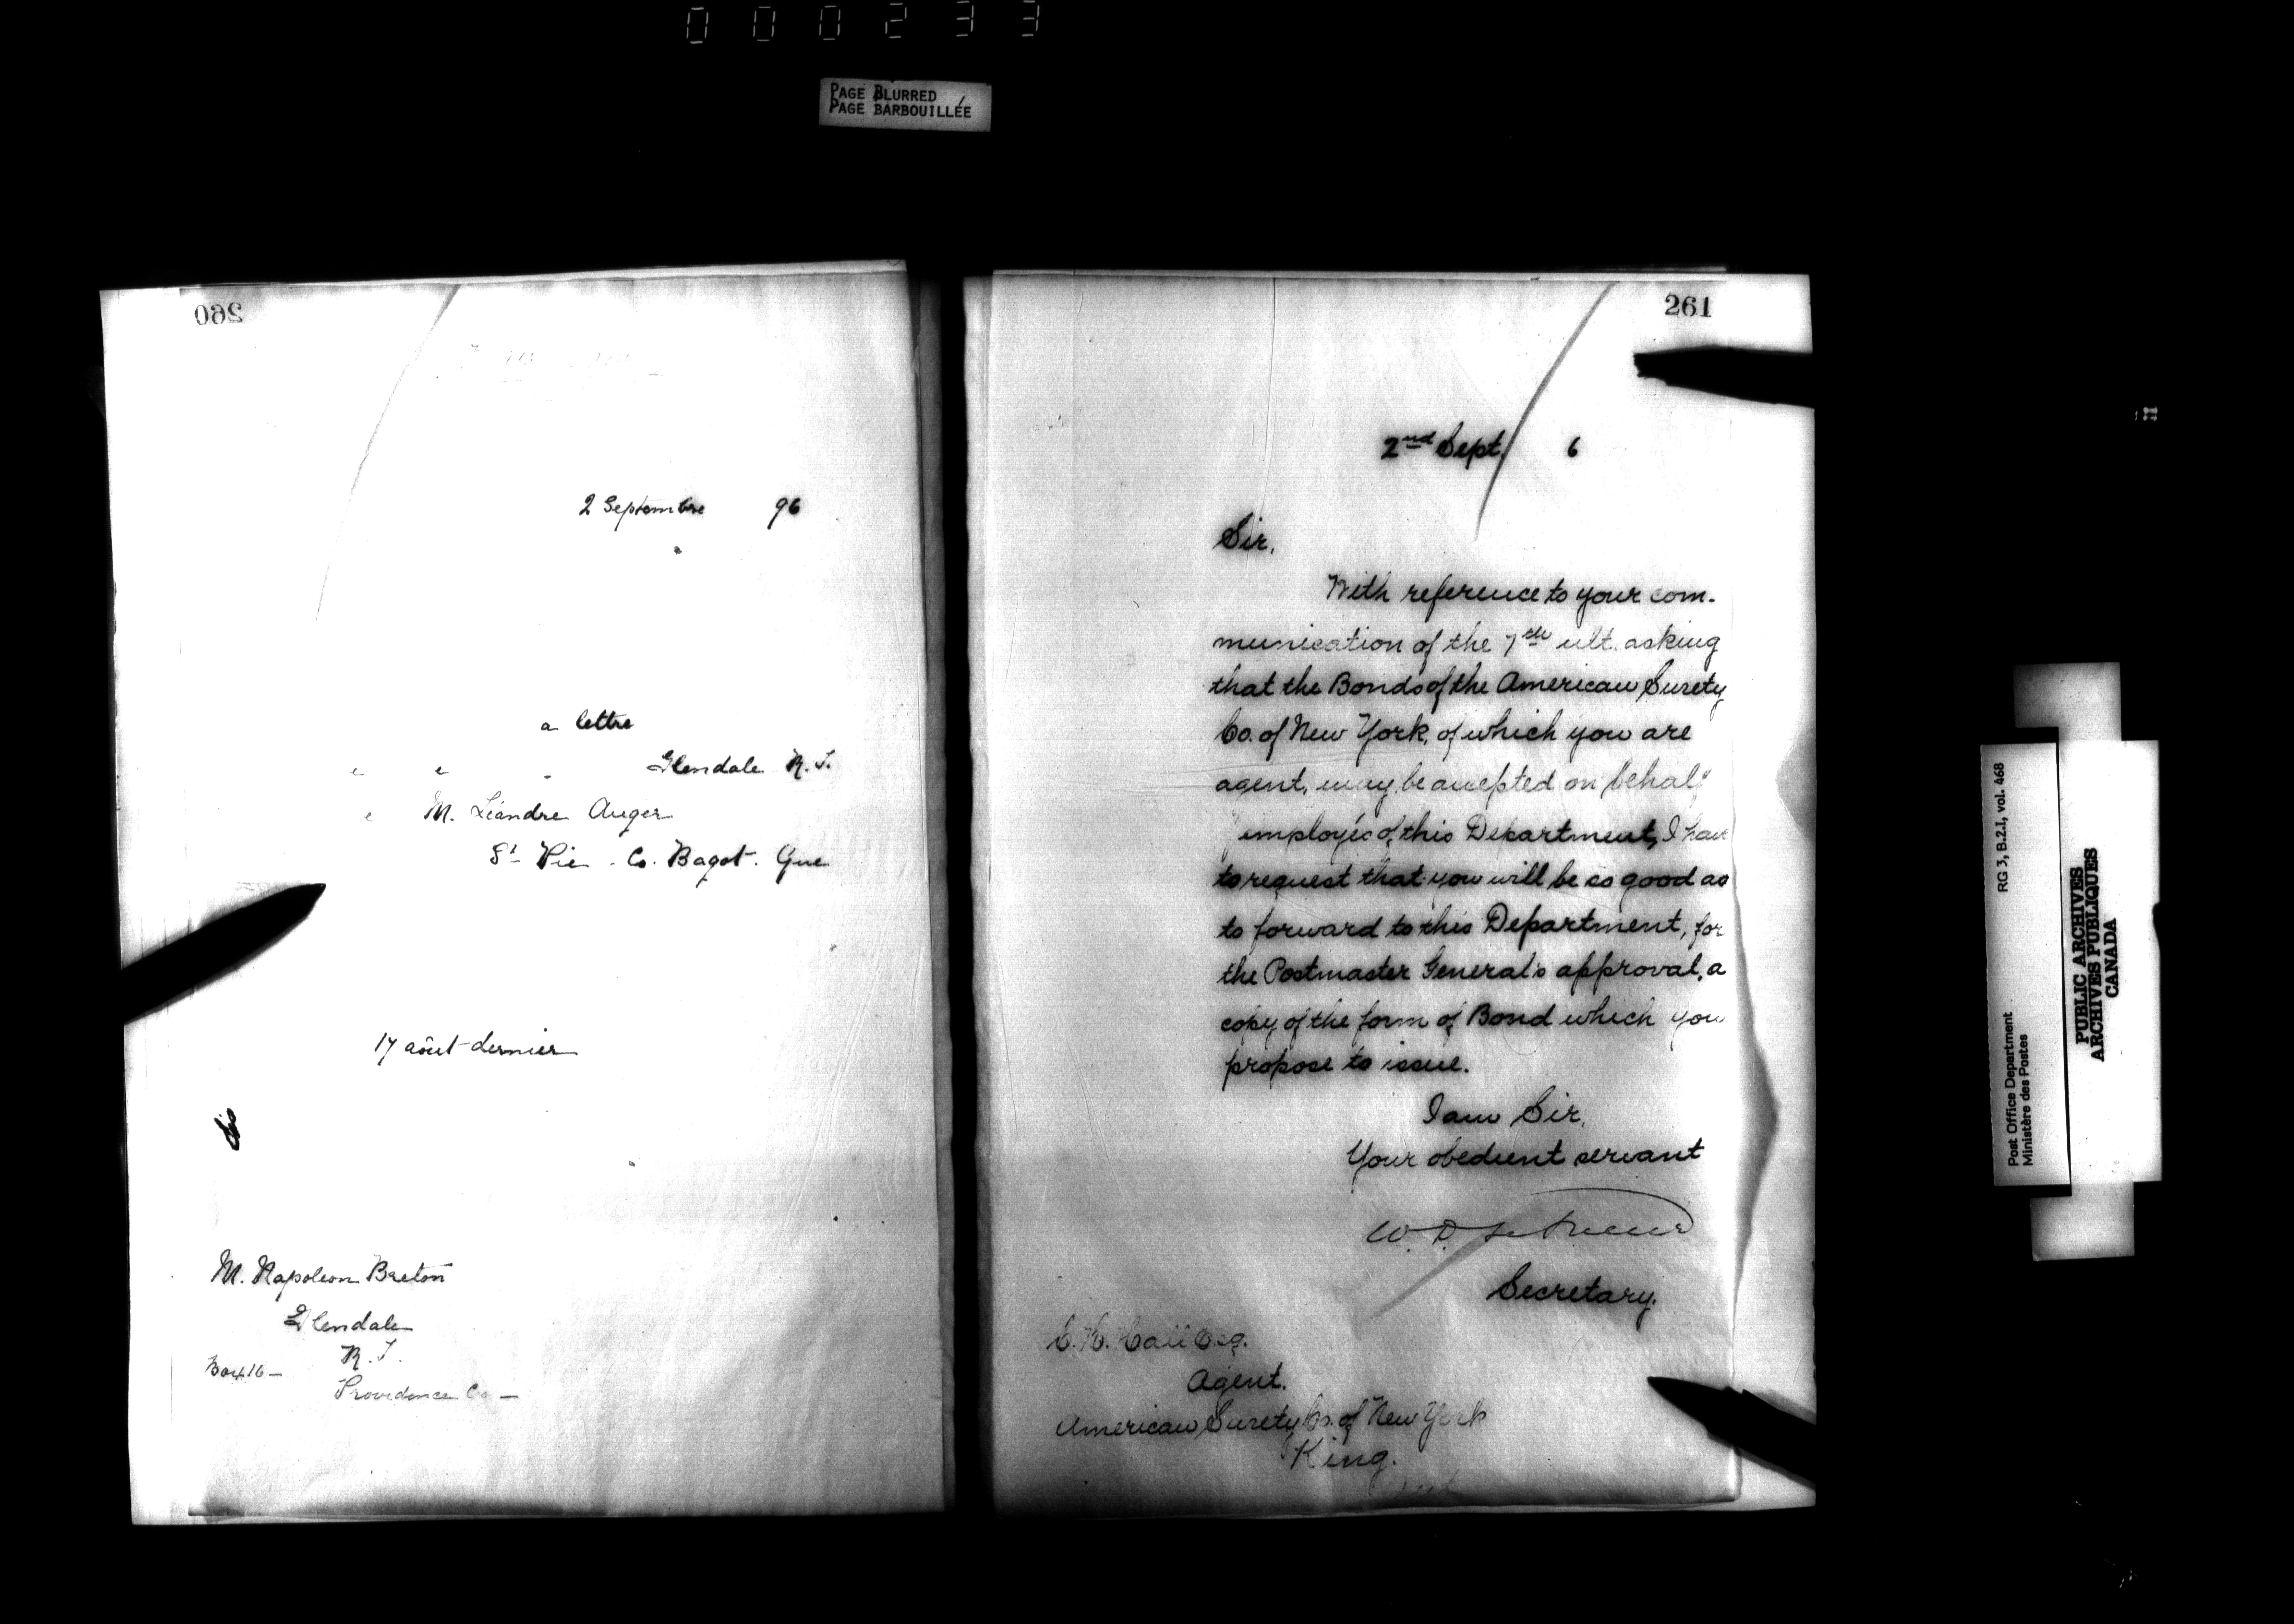 000233
PAGE BLURRED
PAGE BARBOUILLÉE
260
2 Septembre 96
a lettre
e e Glendale R.I.
e M. Léandre Auger
St Pie. Co. Bagot. Que
17 août dernier
M. Napoleon Breton
Glendale
R.I.
Box 16 —
Providence Co —
261
2nd Sept. 6
Sir,
With reference to your com-
munication of the 7th ult. asking
that the Bonds of the American Surety
Co. of New York, of which you are
agent, may be accepted on behalf
employés of this Department, I have
to request that you will be so good as
to forward to this Department, for
the Postmaster General's approval, a
copy of the form of Bond which you
propose to issue.
I am Sir,
Your obedient servant
W. D.
Secretary.
Esq.
Agent.
American Surety Co. of New York
King.
RG 3, B.2.I, vol. 468
Post Office Department
Ministère des Postes
PUBLIC ARCHIVES
ARCHIVES PUBLIQUES
CANADA